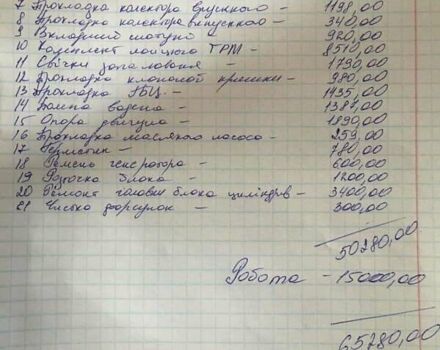 7 Прокладка колектора впускного - 1198,00
8 Прокладка колектора випускного - 340,00
9 Вкладиші шатуні - 920,00
10 Комплект ланцюга ГРМ - 8510,00
11 Свічки запалювання - 1790,00
12 Прокладка клапаной кришки - 980,00
13 Прокладка ГБЦ - 1435,00
14 Помпа водяна - 1387,00
15 Опора двигуна - 1890,00
16 Прокладка масляного насоса - 259,00
17 Герметик - 780,00
18 Ремень генератора - 600,00
19 Расточка блока - 1200,00
20 Ремонт головки блока циліндрів - 3400,00
21 Чистка форсунок - 300,00
50280,00
Робота - 15000,00
65280,00